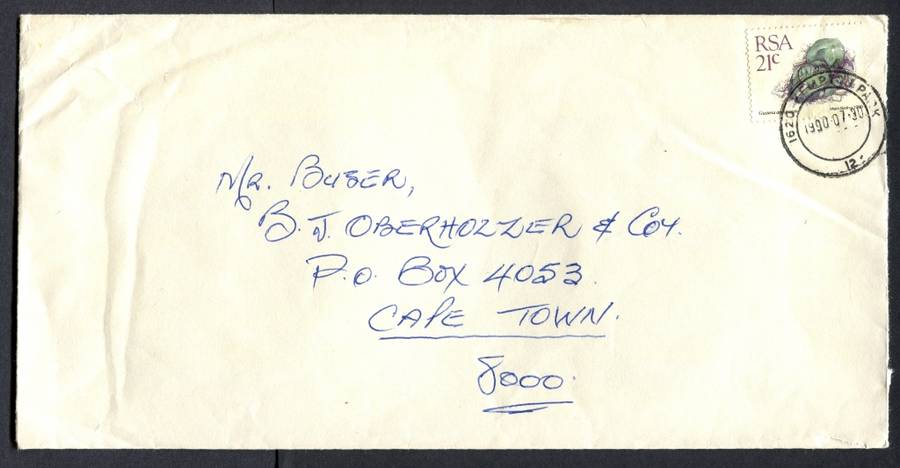 RSA
21c
1620 KEMPTON PARK
1990-07-30
12
Mr. BUSER,
B. J. OBERHOLZZER & Coy.
P.O. Box 4053.
CAPE TOWN.
8000.